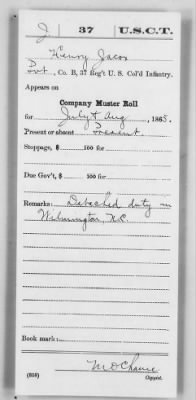 J. 37 U.S.C.T.
Henry Jacox
Pvt., Co. B, 37 Reg't U. S. Col'd Infantry.
Appears on
Company Muster Roll
for July & Aug, 1865.
Present or absent Present
Stoppage, $ 100 for
Due Gov't, $ 100 for
Remarks: Detached duty in
Wilmington, N.C.
Book mark:
(358)
Copyist.